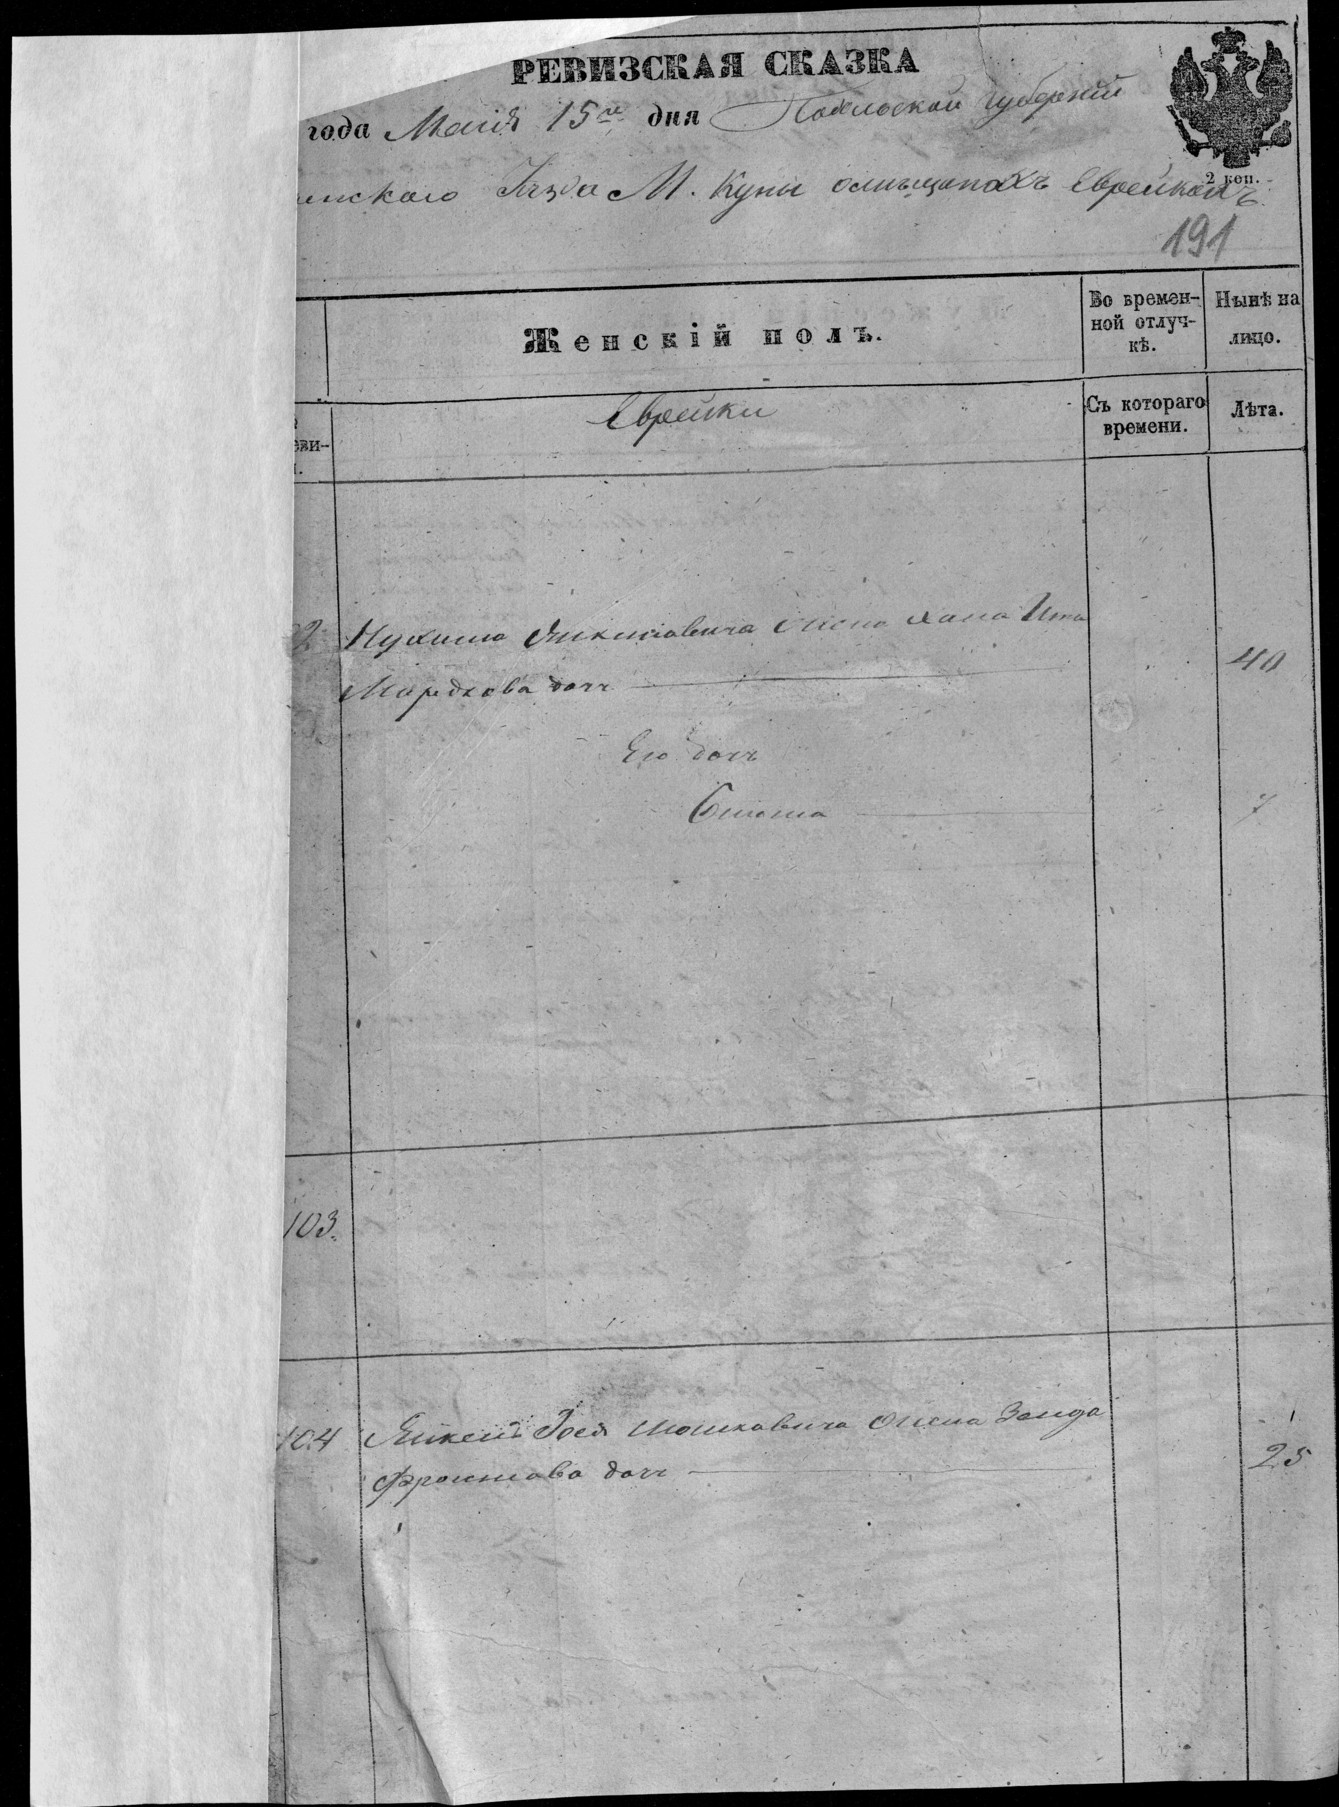 РЕВИЗСКАЯ СКАЗКА
года Маія 15го дня Подольской Губерніи
енскаго Уезда М. Куны омещанахъ Еврейкахъ
2 коп.
191
Женскій полъ.
Во времен-
ной отлуч-
кѣ.
Нынѣ на
лицо.
Еврейки
Съ котораго
времени.
Лѣта.
еви-
2 Нухима жена Хана Ита
Мордкова дочь 40
Его дочь
7
103.
104 Янкеля Мошковича жена Зенда
Фроимова дочь 25